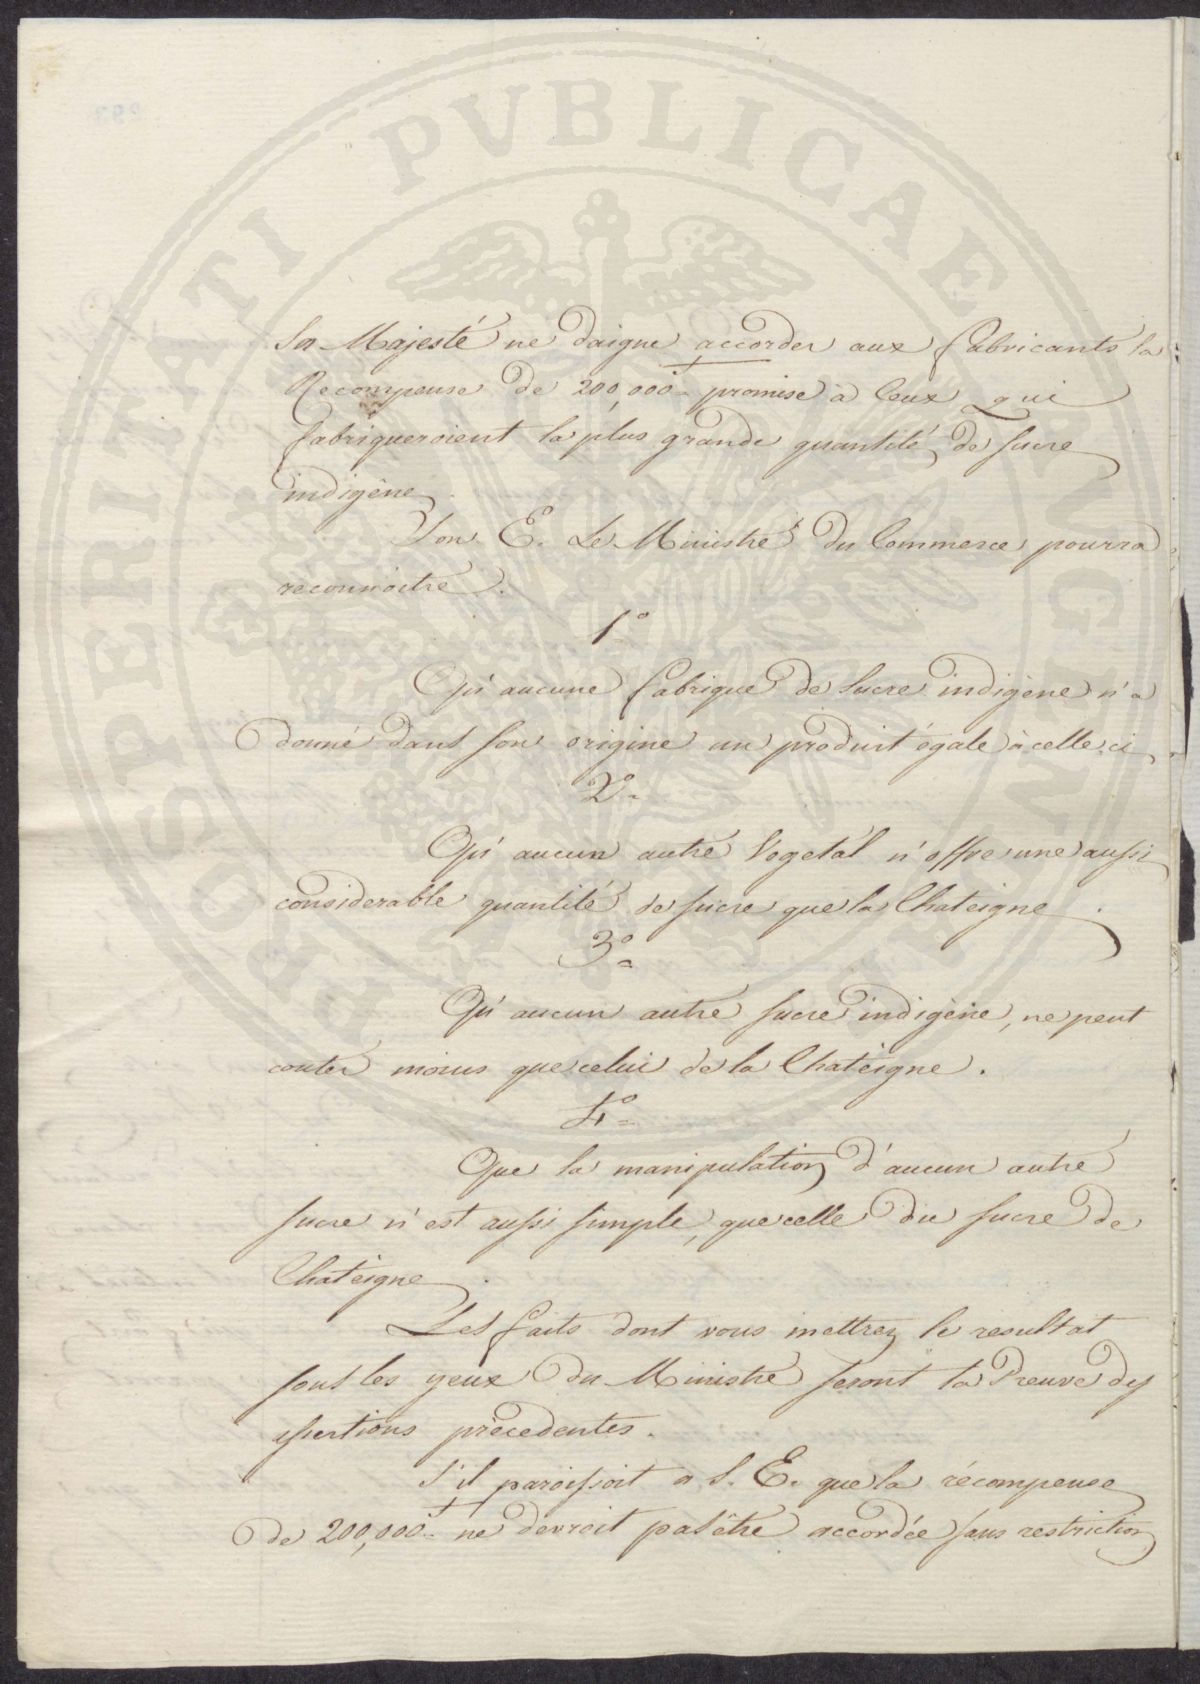 PROSPERITATI PVBLICAE AVGENDAE
Sa Majesté ne daigne accorder aux fabricants la
Recompense de 200,000 f promise à Ceux qui
fabriqueroient la plus grande quantité de sucre
indigène.
Son E. Le Ministre du Commerce pourra
reconnoitre.
1°
Qu'aucune fabrique de Sucre indigène n'a
donné dans son origine un produit égale à celle ci,
2°
Qu'aucun autre Vegetal n'offre une aussi
considerable quantité de sucre que la Chateigne.
3°
Qu'aucun autre sucre indigène, ne peut
couter moins que celui de la Chateigne.
4°
Que la manipulation d'aucun autre
sucre n'est aussi simple, que celle du sucre de
Chateigne.
Les faits dont vous mettrez le resultat
sous les yeux du Ministre seront la Preuve des
assertions précedentes.
S'il paroissoit a S. E. que la récompense
de 200,000 f ne devroit pas être accordée sans restriction